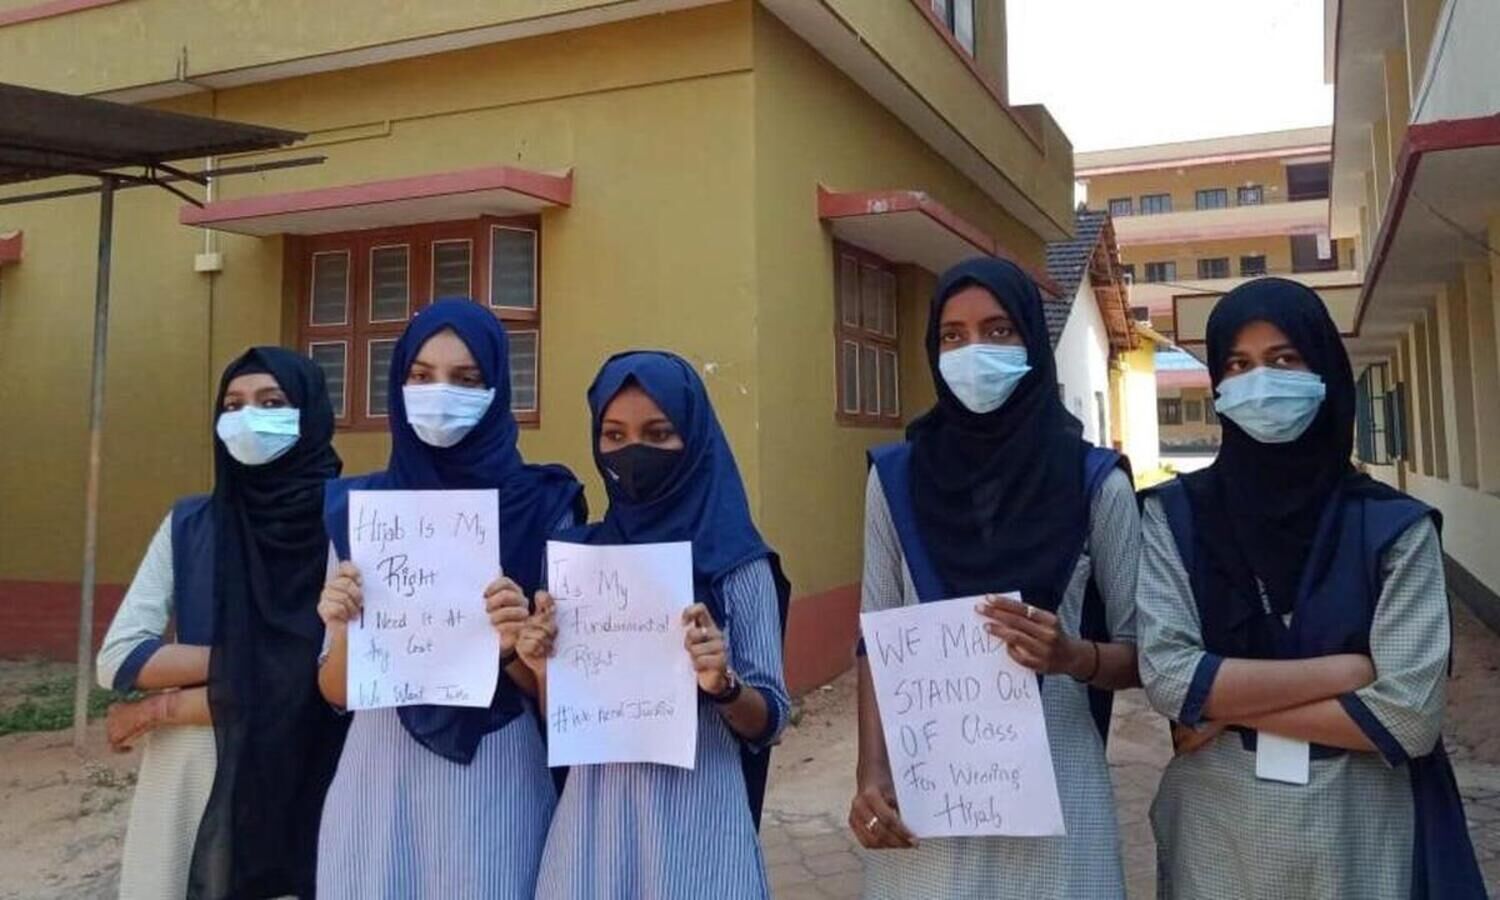 Hijab Is My
Right
I Need It At
Any Cost
We Want
Its My
Fundamental
Right
#We need Justice
WE MADE
STAND Out
OF Class
For Wearing
Hijab